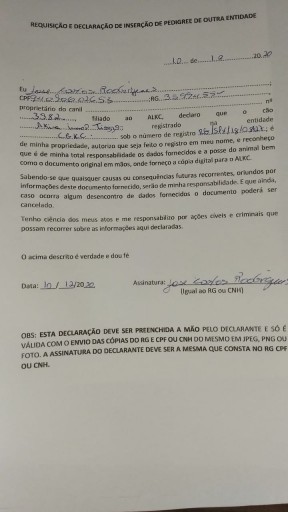 REQUISIÇÃO E DECLARAÇÃO DE INSERÇÃO DE PEDIGREE DE OUTRA ENTIDADE
10 de 12 2020
Eu Jose Carlos Rodrigues
CPF RG
proprietário do canil nº
3382, filiado ao ALKC, declaro que o cão
registrado na entidade
CBKC sob o número de registro, é
de minha propriedade, autorizo que seja feito o registro em meu nome, e reconheço
que é de minha total responsabilidade os dados fornecidos e a posse do animal bem
como o documento original em mãos, onde forneço a cópia digital para o ALKC.
Sabendo-se que quaisquer causas ou consequências futuras recorrentes, oriundos por
informações deste documento fornecido, serão de minha responsabilidade. E que ainda,
caso ocorra algum desencontro de dados fornecidos o documento poderá ser
cancelado.
Tenho ciência dos meus atos e me responsabilizo por ações civeis e criminais que
possam recorrer sobre as informações aqui declaradas.
O acima descrito é verdade e dou fé
Data: 10 / 12/2020 Assinatura: Jose Carlos Rodrigues
(Igual ao RG ou CNH)
OBS: ESTA DECLARAÇÃO DEVE SER PREENCHIDA A MÃO PELO DECLARANTE E SÓ É
VÁLIDA COM O ENVIO DAS CÓPIAS DO RG E CPF OU CNH DO MESMO EM JPEG, PNG OU
FOTO. A ASSINATURA DO DECLARANTE DEVE SER A MESMA QUE CONSTA NO RG CPF
OU CNH.